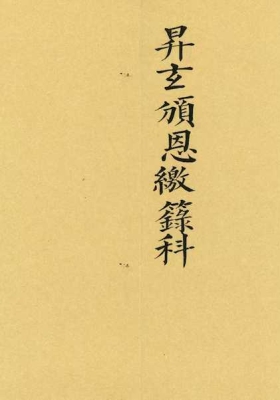 昇玄頒恩繳籙科